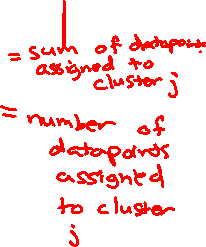 = sum of datapoints
assigned to
cluster j
= number of
datapoints
assigned
to cluster
j